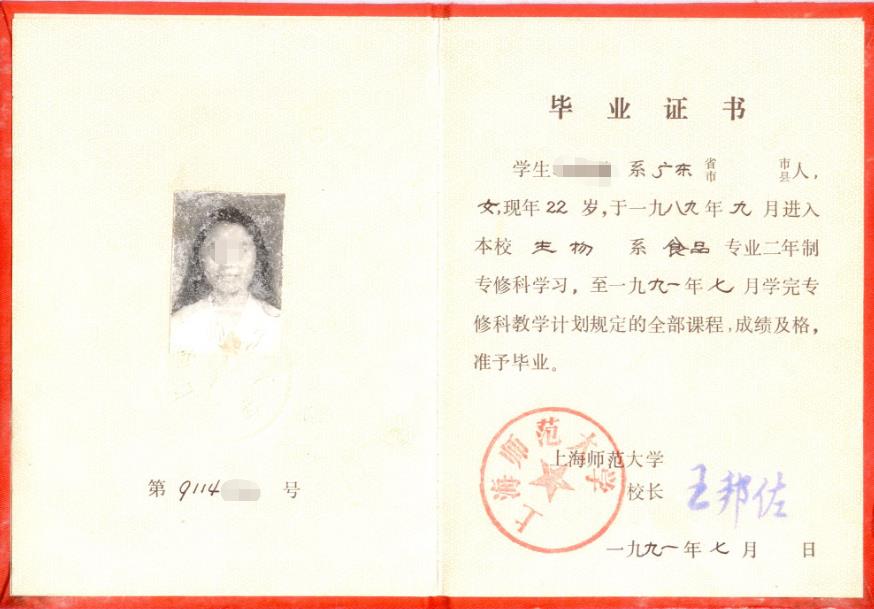 第 9114 号
毕业证书
学生 系广东 省市 市县人，
女，现年22岁，于一九八九年九月进入
本校生物系食品专业二年制
专修科学习，至一九九一年七月学完专
修科教学计划规定的全部课程，成绩及格，
准予毕业。
上海师范大学
上海师范大学
校长 王邦佐
一九九一年七月 日